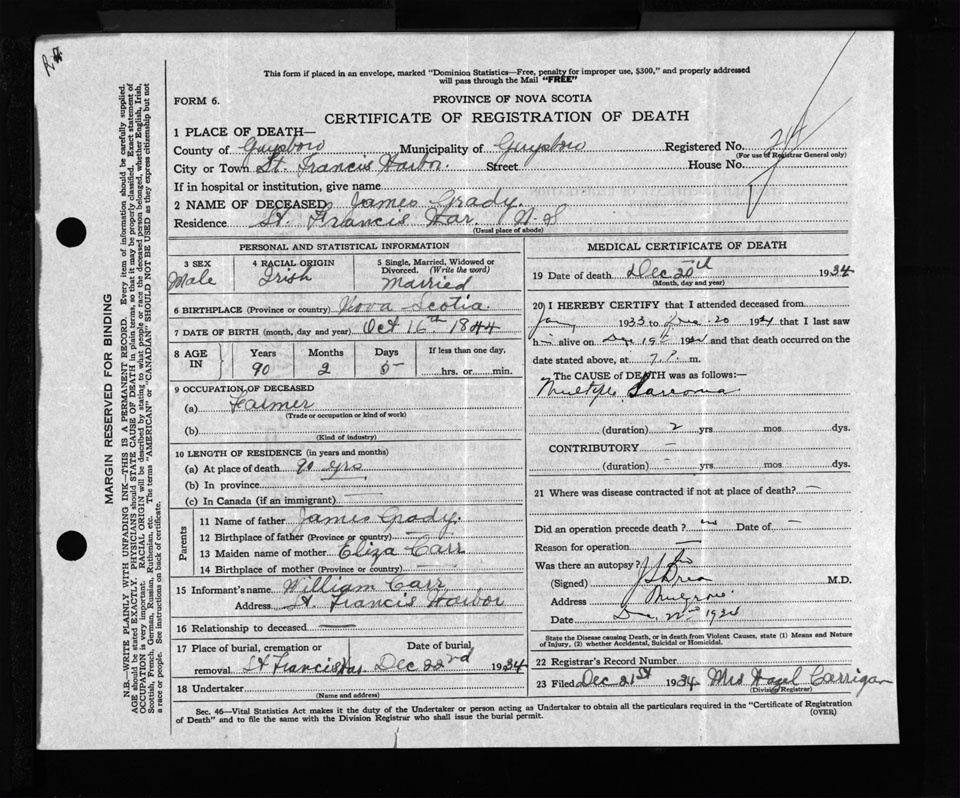 This form if placed in an envelope, marked "Dominion Statistics—Free, penalty for improper use, $300," and properly addressed
will pass through the Mail "FREE"
FORM 6.
PROVINCE OF NOVA SCOTIA
CERTIFICATE OF REGISTRATION OF DEATH
1 PLACE OF DEATH—
County of Guysboro Municipality of Guysboro Registered No.
(For use of Registrar General only)
City or Town St. Francis Harbor. Street House No.
If in hospital or institution, give name
2 NAME OF DECEASED James Grady.
Residence St. Francis Har. N. S
(Usual place of abode)
PERSONAL AND STATISTICAL INFORMATION
3 SEX
Male
4 RACIAL ORIGIN
Irish
5 Single, Married, Widowed or
Divorced. (Write the word)
Married
6 BIRTHPLACE (Province or country) Nova Scotia
7 DATE OF BIRTH (month, day and year) Oct 16th 1844
8 AGE
IN
Years
90
Months
2
Days
5
If less than one day,
hrs. or min.
9 OCCUPATION OF DECEASED
(a) Farmer
(Trade or occupation or kind of work)
(b)
(Kind of industry)
10 LENGTH OF RESIDENCE (in years and months)
(a) At place of death 90 yrs
(b) In province
(c) In Canada (if an immigrant)
Parents
11 Name of father James Grady.
12 Birthplace of father (Province or country)
13 Maiden name of mother Eliza Carr
14 Birthplace of mother (Province or country)
15 Informant's name William Carr
Address St. Francis Harbor
16 Relationship to deceased
17 Place of burial, cremation or
Date of burial,
removal St Francis Har. Dec 22rd 1934
18 Undertaker
(Name and address)
MEDICAL CERTIFICATE OF DEATH
19 Date of death Dec 20th 1934
(Month, day and year)
20 I HEREBY CERTIFY that I attended deceased from
1933 to 20 1934 that I last saw
him alive on Dec 19th 1934 and that death occurred on
the date stated above, at 7 P. m.
The CAUSE of DEATH was as follows:—
Multiple Sarcoma
(duration) 2 yrs mos dys.
CONTRIBUTORY —
(duration) — yrs mos dys.
21 Where was disease contracted if not at place of death? —
Did an operation precede death? no Date of —
Reason for operation —
Was there an autopsy? no
(Signed) M.D.
Address Mulgrave
Date Dec. 22nd 1934
State the Disease causing Death, or in death from Violent Causes, state (1) Means and Nature
of Injury, (2) whether Accidental, Suicidal or Homicidal.
22 Registrar's Record Number
23 Filed Dec 21st 1934 Mrs Hazel Carrigan
(Division Registrar)
Sec. 46—Vital Statistics Act makes it the duty of the Undertaker or person acting as Undertaker to obtain all the particulars required in the "Certificate of Registration
of Death" and to file the same with the Division Registrar who shall issue the burial permit.
(OVER)
MARGIN RESERVED FOR BINDING
N.B.—WRITE PLAINLY WITH UNFADING INK—THIS IS A PERMANENT RECORD. Every item of information should be carefully supplied.
AGE should be stated EXACTLY. PHYSICIANS should STATE CAUSE OF DEATH in plain terms, so that it may be properly classified. Exact statement of
OCCUPATION is very important. RACIAL ORIGIN will be described by stating to what people or race the deceased person belonged, whether English, Irish,
Scottish, French, German, Russian, Ruthenian, etc. The terms "AMERICAN" or "CANADIAN" SHOULD NOT BE USED as they express citizenship but not
a race or people. See instructions on back of certificate.